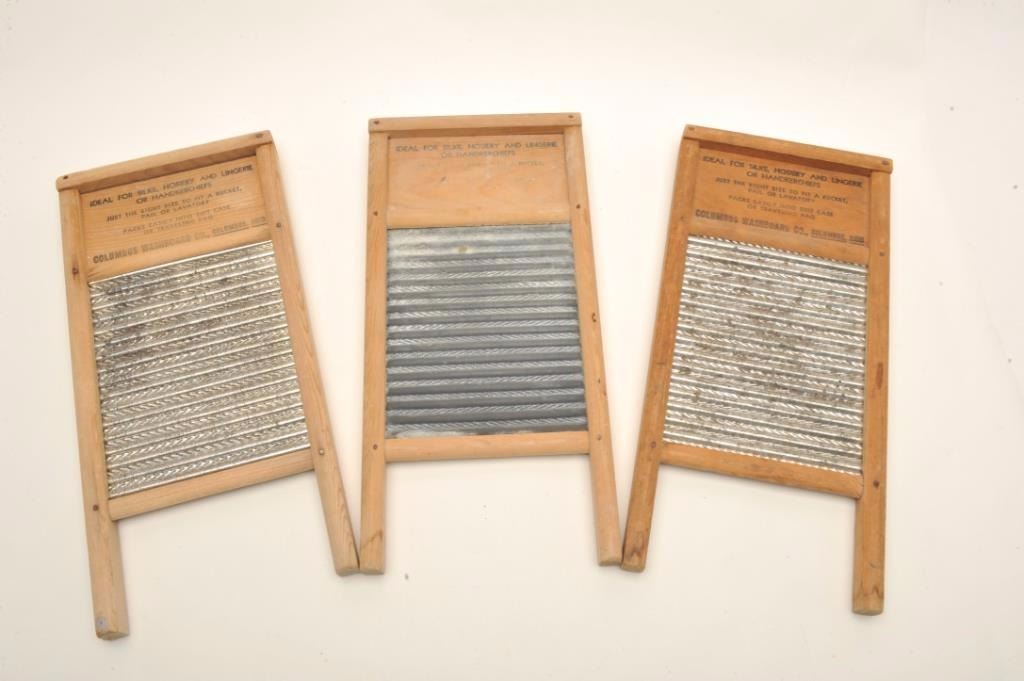 IDEAL FOR SILKS, HOSIERY AND LINGERIE
OR HANDKERCHIEFS
JUST THE RIGHT SIZE TO FIT A BUCKET,
PAIL OR LAVATORY
PACKS EASILY INTO SUIT CASE
OR TRAVELING BAG
COLUMBUS WASHBOARD CO. COLUMBUS, OHIO
IDEAL FOR SILKS, HOSIERY AND LINGERIE
OR HANDKERCHIEFS
IDEAL FOR SILKS, HOSIERY AND LINGERIE
OR HANDKERCHIEFS
JUST THE RIGHT SIZE TO FIT A BUCKET,
PAIL OR LAVATORY
PACKS EASILY INTO SUIT CASE
OR TRAVELING BAG
COLUMBUS WASHBOARD CO. COLUMBUS, OHIO